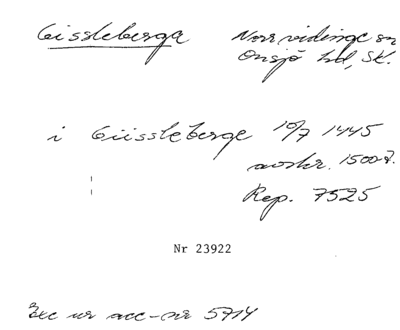 Gissleberga Norrvidinge sn
Onsjö hd, Sk.
i Giissleberge 10/7 1445
avskr. 1500-t.
Rep. 7525
Nr 23922
Exc ur acc-nr 5714